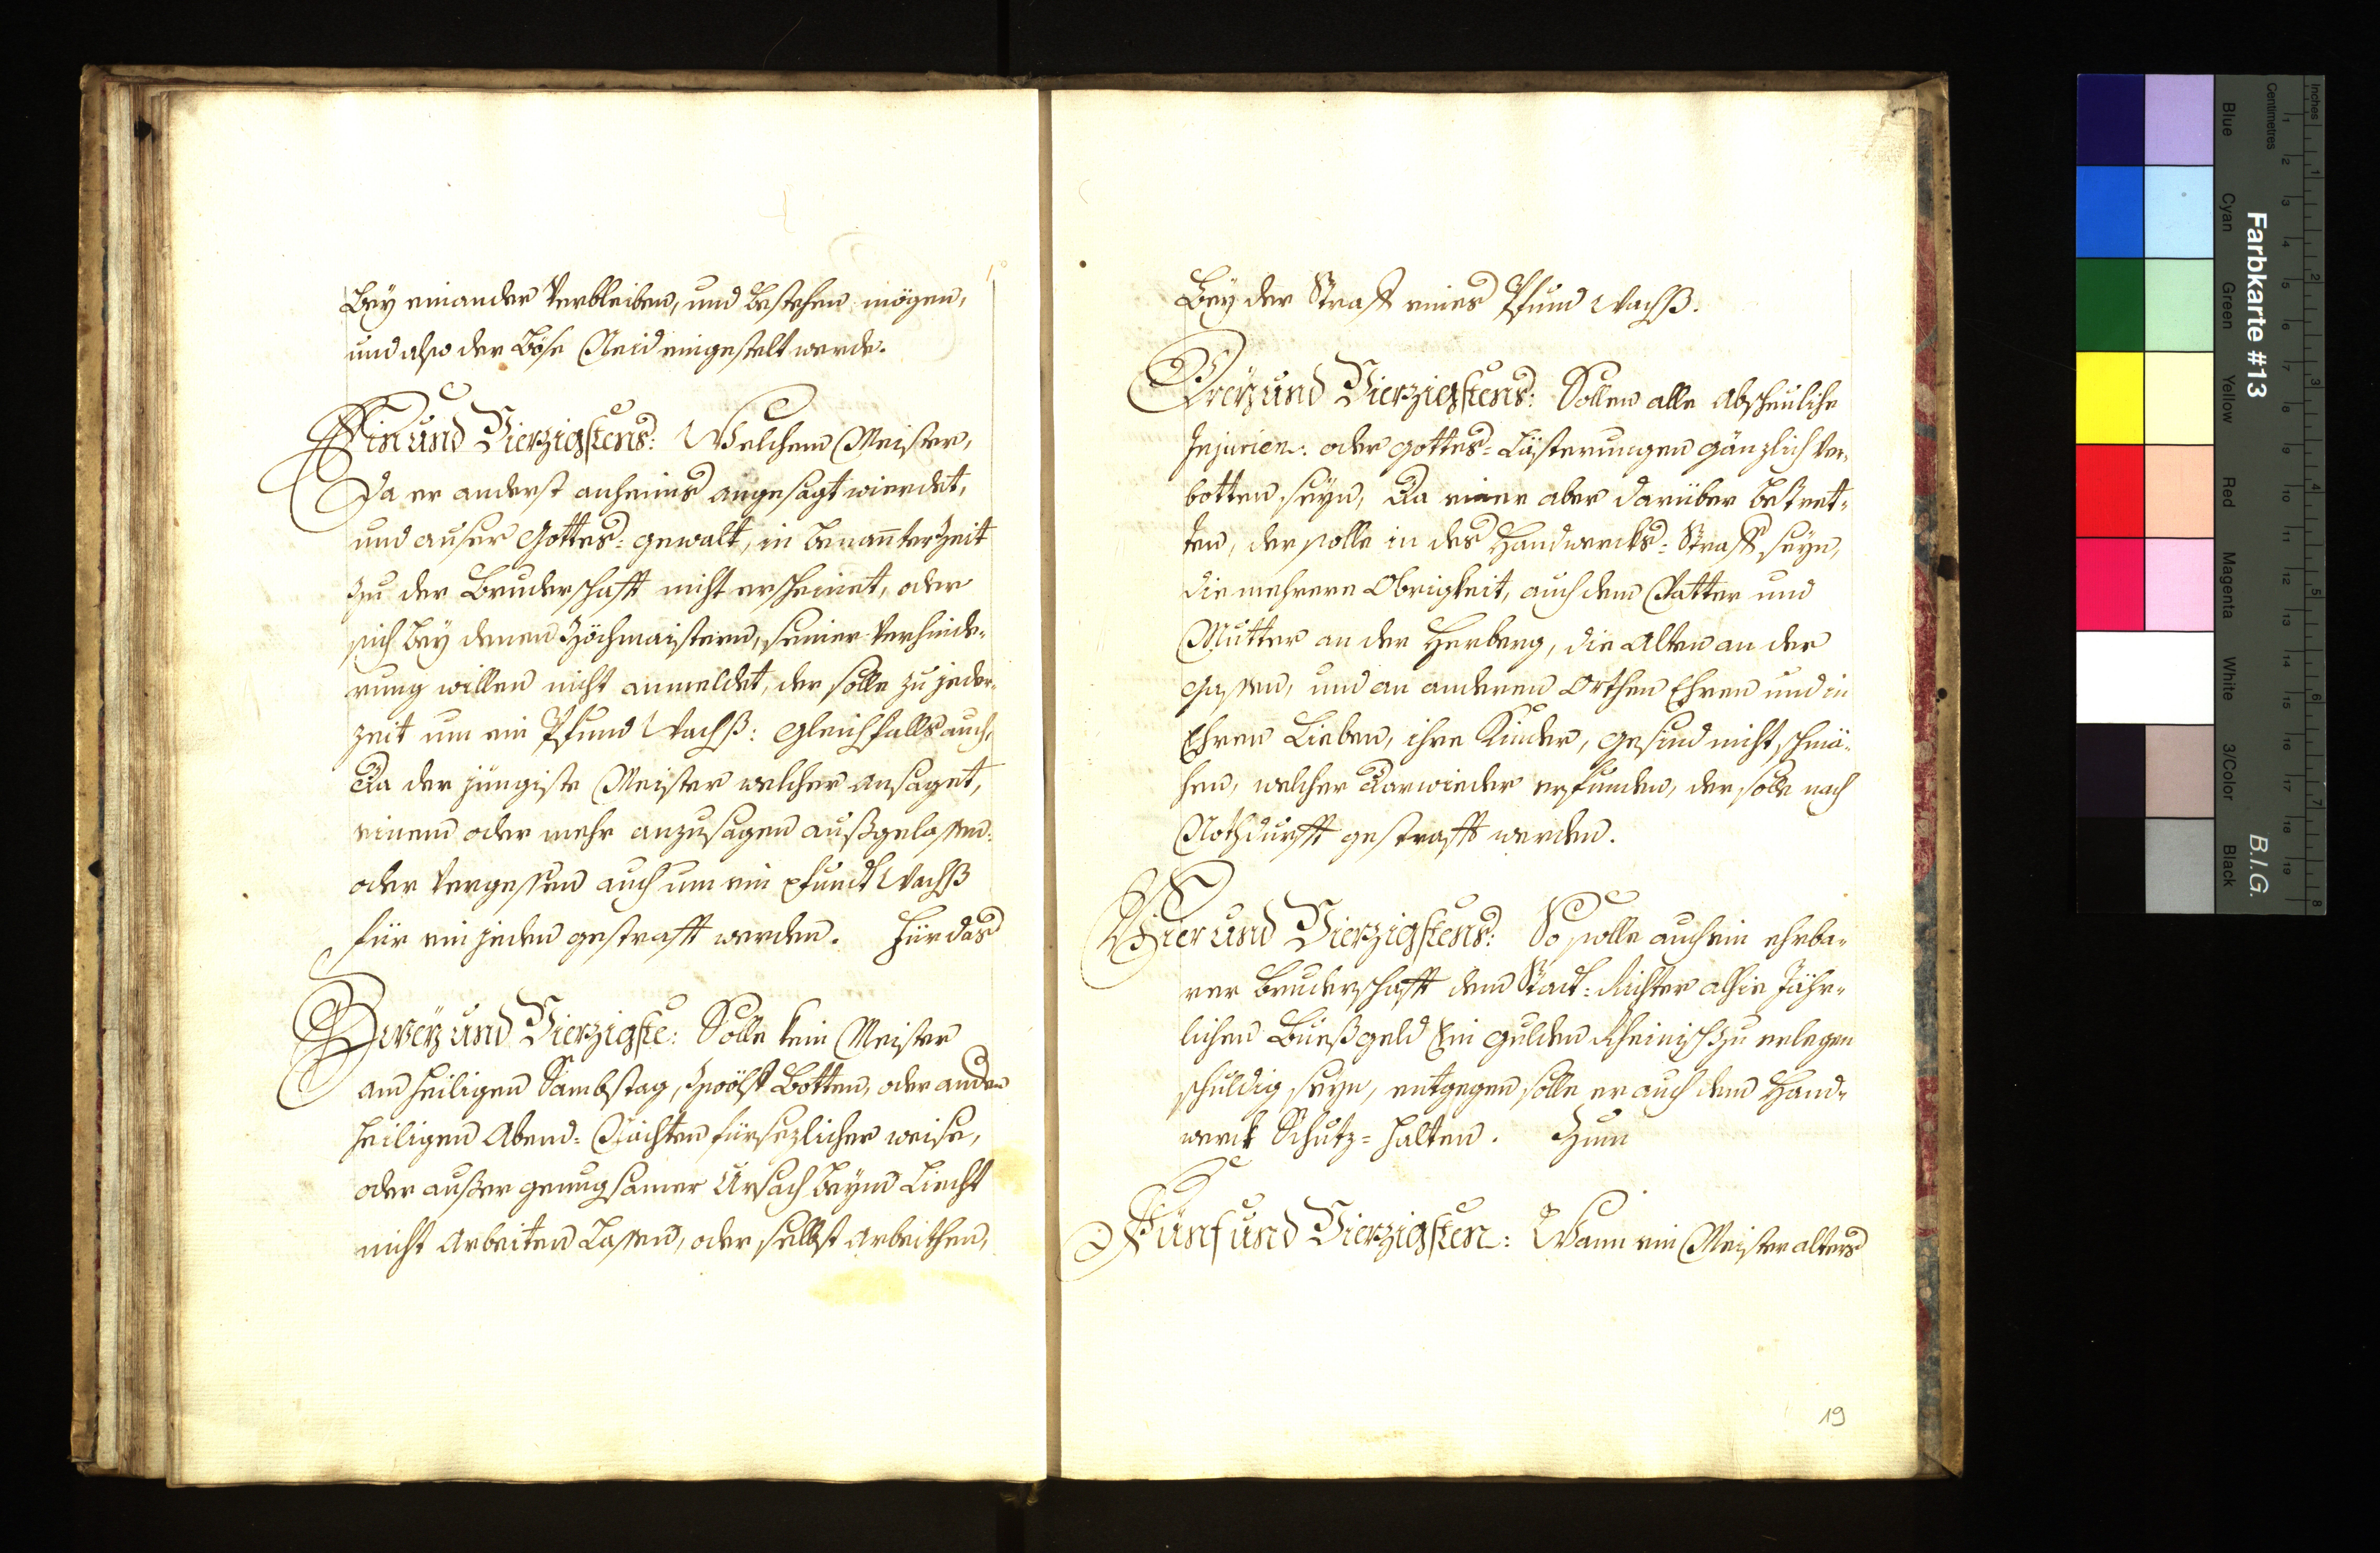 Bey einander Verbleiben, und bestehen mögen,
und also der Böse Neid eingestelt werde.
Ein und Vierzigstens: Welchem Meister,
Da er anderst anheims angesagt wierdet,
und auser Gottes=gewalt, in benanter Zeit
zu der Bruderschafft nicht erscheinet, oder
sich Bey denen Zöchmaistern, seiner Verhinde=
rung willen nicht anmeldet, der solle zu jeder=
zeit um ein Pfund Wachß: Gleichfalls auch,
Da der jüngiste Meister welcher ansaget,
einem oder mehr anzusagen außgelassen:
oder Vergessen auch um ein Pfundt Wachß
für ein jeden gestrafft werden. Für das
Zwey und Vierzigste: Solle kein Meister
am heiligen Sambstag, Zwölff Botten, oder anderen
heiligen Abend=Nächten fürsezlicher weise,
oder außer genugsamer Ursach beym Liecht
nicht Arbeiten Lassen, oder selbst Arbeithen,
Bey der Straff eines Pfund Wachß.
Drey und Vierzigstens: Sollen alle Abscheuliche
Injurien: oder Gottes=Lästerungen gänzlich Ver=
botten seyn, Da einer aber darüber betret=
ten, der solle in des Handwercks=Straff seyn,
die mehrere Obrigkeit, auch den Vatter und
Mutter an der Herberg, die Alten an der
Gassen, und an anderen Orthen Ehren und in
Ehren Lieben, ihre Kinder, gesind nicht schmä=
hen, welcher Darwieder erfunden, der solle nach
Nothdurfft gestrafft werden.
Vier und Vierzigstens: So solle auch ein ehrba=
rer Bruderschafft dem Stadt=Richter alhie Jähr=
lichen Bueßgeld Ein Gulden Rheinisch zu erlegen
schuldig seyn, entgegen solle er auch dem Hand=
werck Schutz=halten. Zum
Fünf und Vierzigsten: Wann ein Meister alters
19
Farbkarte #13
B.I.G.
Inches
Centimetres
Blue
Cyan
Green
Yellow
Red
Magenta
White
3/Color
Black